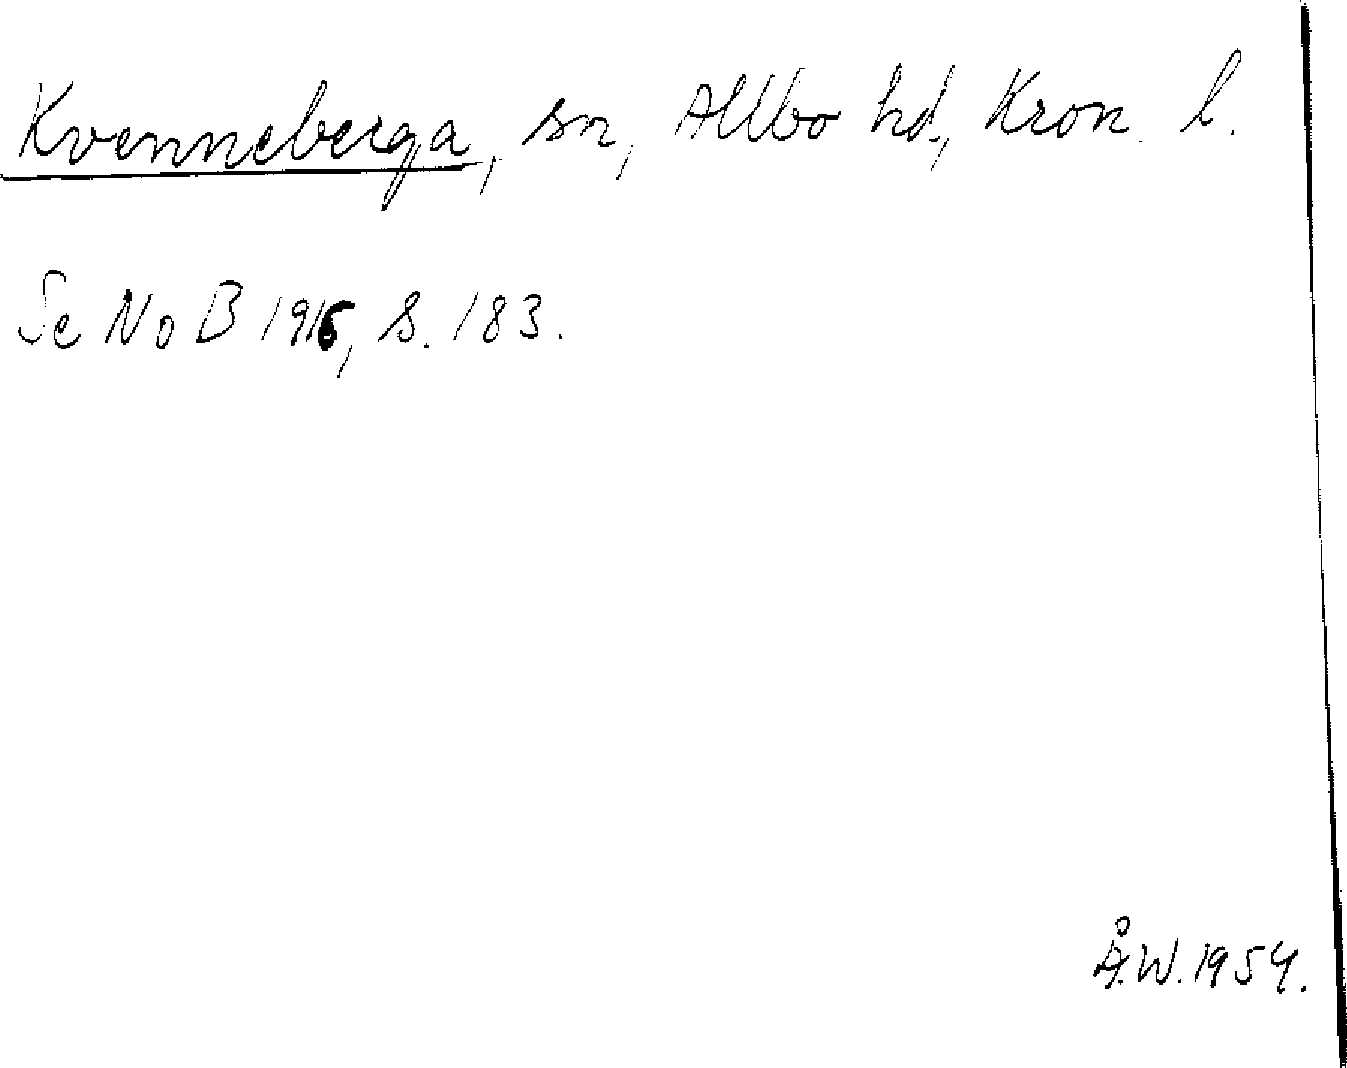 Kvenneberga, sn, Allbo hd, Kron. l.
Se NoB 1916, s. 183.
Å.W. 1954.